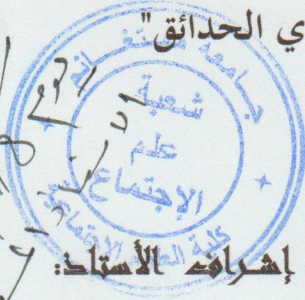 ي الحدائق"
جامعة مستغانم
شعبة
علم
الإجتماع
كلية العلوم الاجتماعية
إشراف الأستاذ: